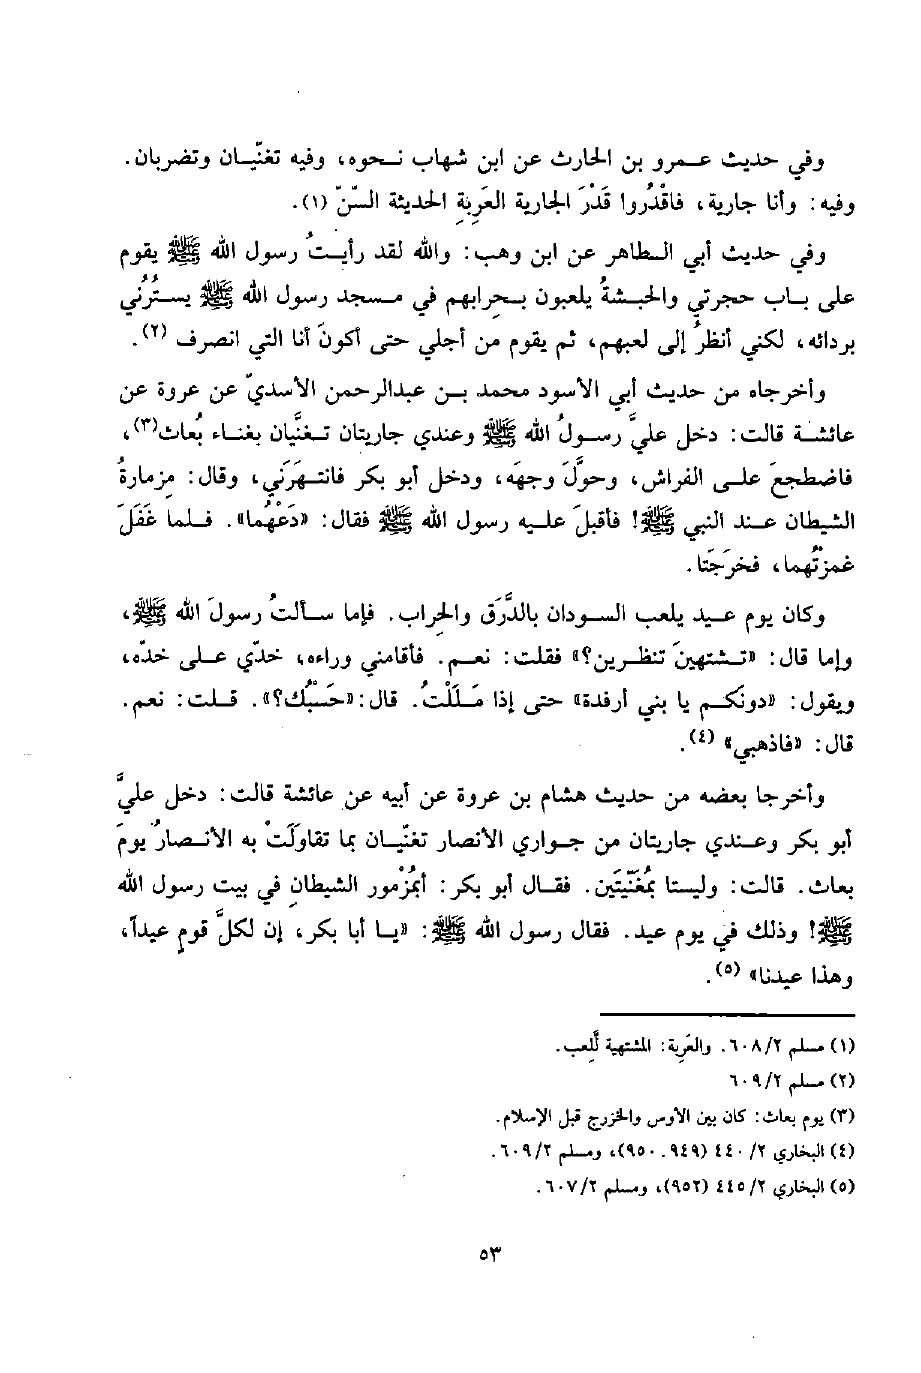 وفي حديث عمرو بن الحارث عن ابن شهاب نحوه، وفيه تغنّيان وتضربان.
وفيه: وأنا جارية، فاقْدُروا قَدْرَ الجارية العَرِبةِ الحديثة السّنّ (١).
وفي حديث أبي الطاهر عن ابن وهب: والله لقد رأيتُ رسول الله ﷺ يقوم
على باب حجرتي والحبشةُ يلعبون بحِرابهم في مسجد رسول الله ﷺ يستُرُني
بردائه، لكني أنظرُ إلى لعبهم، ثم يقوم من أجلي حتى أكونَ أنا التي انصرف (٢).
وأخرجاه من حديث أبي الأسود محمد بن عبدالرحمن الأسديّ عن عروة عن
عائشة قالت: دخل عليَّ رسولُ الله ﷺ وعندي جاريتان تغنَّيان بغناء بُعاث(٣)،
فاضطجعَ على الفراش، وحوَّلَ وجهَه، ودخل أبو بكر فانتهرَني، وقال: مِزمارةُ
الشيطان عند النبي ﷺ! فأقبلَ عليه رسول الله ﷺ فقال: «دَعْهُما». فلما غَفَلَ
غمزتُهما، فخرَجَتا.
وكان يوم عيد يلعب السودان بالدَّرَق والحِراب. فإما سألتُ رسولَ الله ﷺ،
وإما قال: «تشتهينَ تنظرين؟» فقلت: نعم. فأقامني وراءه، خدّي على خدّه،
ويقول: «دونكم يا بني أرفدة» حتى إذا مَلَلْتُ. قال: «حَسْبُك؟». قلت: نعم.
قال: «فاذهبي» (٤).
وأخرجا بعضه من حديث هشام بن عروة عن أبيه عن عائشة قالت: دخل عليَّ
أبو بكر وعندي جاريتان من جواري الأنصار تغنّيان بما تقاوَلَتْ به الأنصارُ يومَ
بعاث. قالت: وليستا بمُغَنّيَتَين. فقال أبو بكر: أبمُزْمور الشيطانِ في بيت رسول الله
ﷺ! وذلك في يوم عيد. فقال رسول الله ﷺ: «يا أبا بكر، إن لكلَّ قومٍ عيداً،
وهذا عيدنا» (٥).
(١) مسلم ٦٠٨/٢. والعَرِبة: المشتهية للَّعِب.
(٢) مسلم ٦٠٩/٢
(٣) يوم بعاث: كان بين الأوس والخزرج قبل الإسلام.
(٤) البخاري ٤٤٠/٢ (٩٤٩. ٩٥٠)، ومسلم ٦٠٩/٢.
(٥) البخاري ٤٤٥/٢ (٩٥٢)، ومسلم ٦٠٧/٢.
٥٣